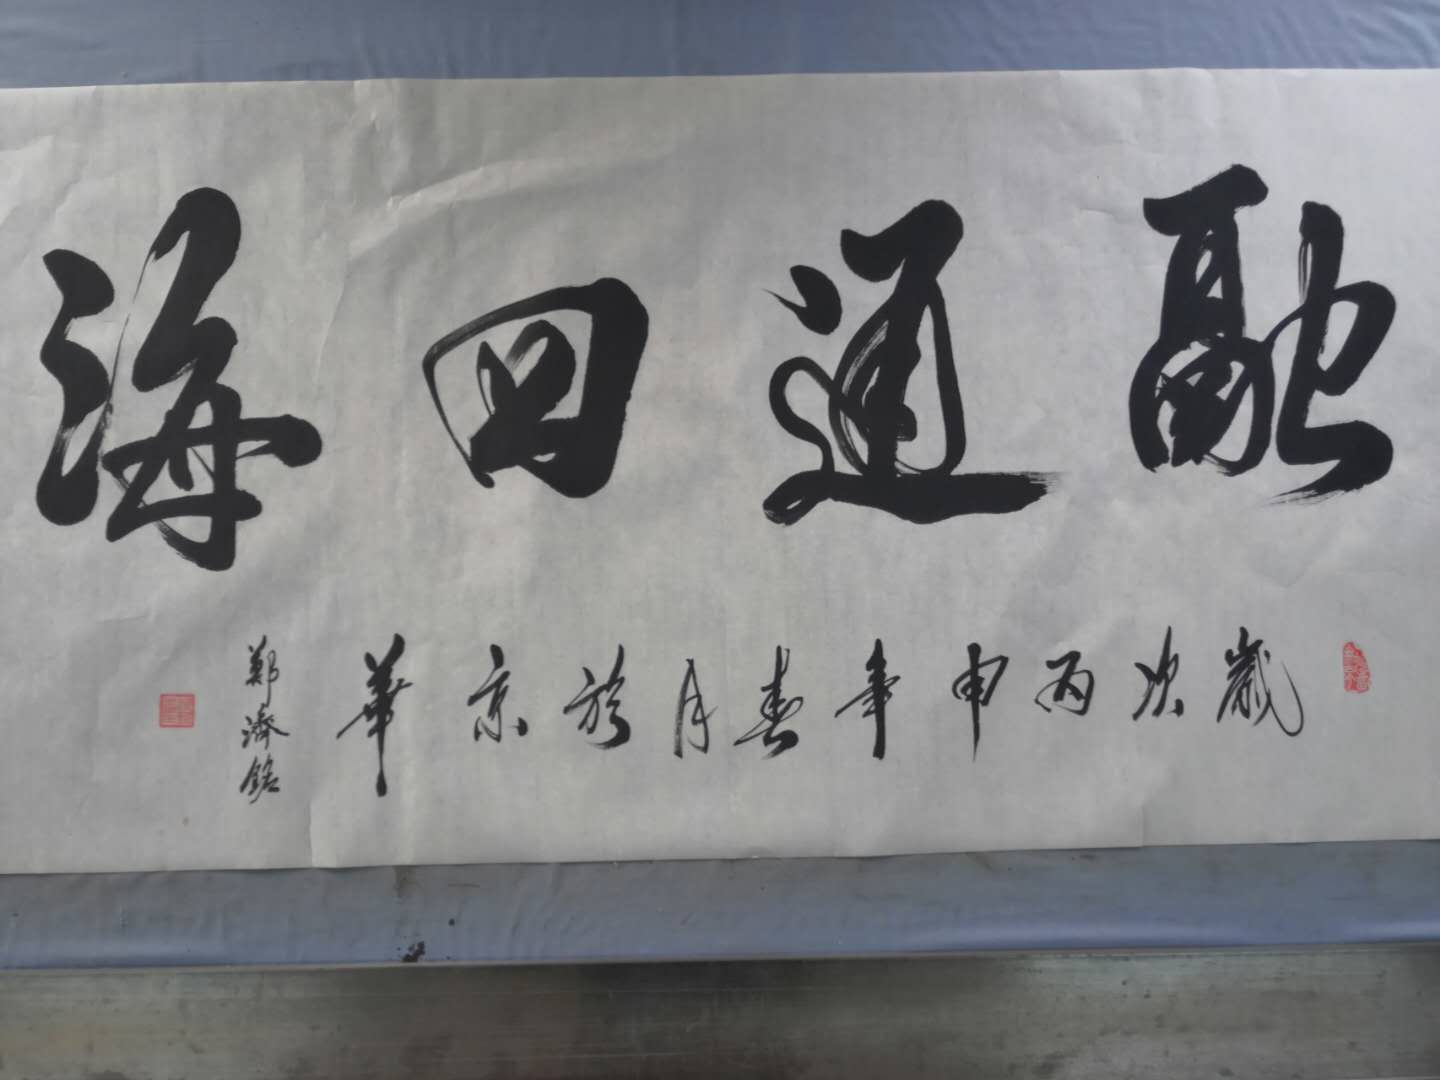 融通四海
歲次丙申年春月於京華
鄭濟銘